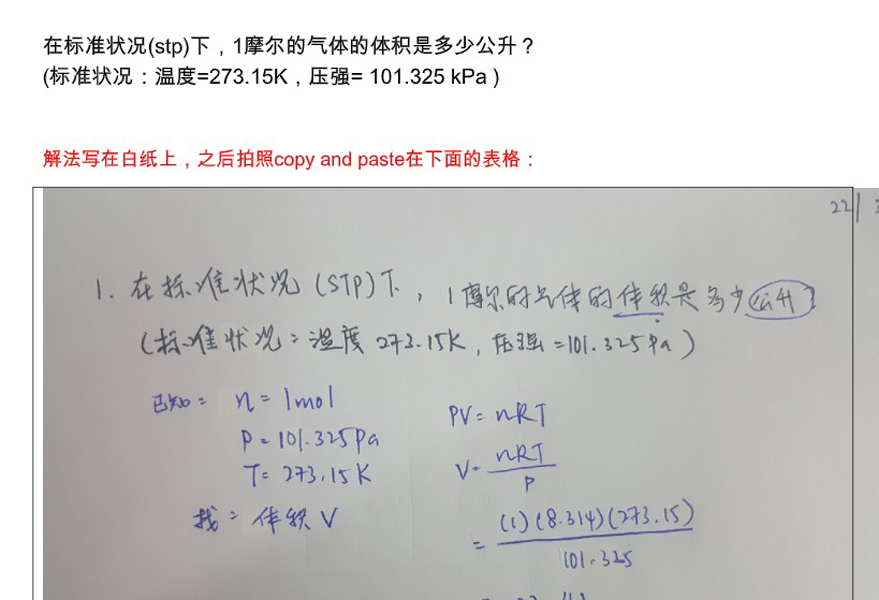 在标准状况(stp)下，1摩尔的气体的体积是多少公升？
(标准状况：温度=273.15K，压强= 101.325 kPa )
解法写在白纸上，之后拍照copy and paste在下面的表格：
22/
1. 在标准状况(STP)下，1摩尔的气体的体积是多少公升?
(标准状况：温度 273.15K，压强=101.325Pa)
已知：n = 1mol
P = 101.325Pa
T = 273.15K
找：体积 V
PV = nRT
V = nRT
P
= (1)(8.314)(273.15)
101.325